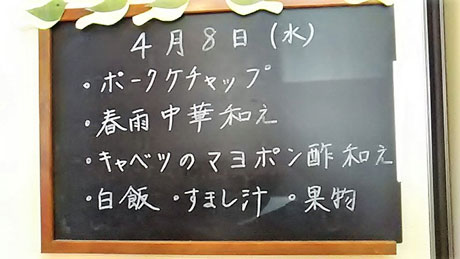 4月8日(水)
・ポークケチャップ
・春雨中華和え
・キャベツのマヨポン酢和え
・白飯・すまし汁・果物